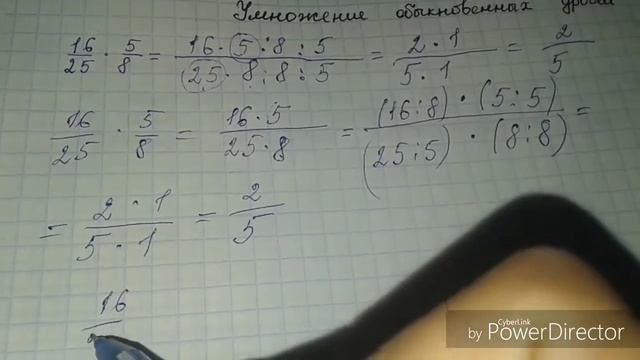 Умножение обыкновенных
16/25 · 5/8 = 16 · 5 : 8 : 5 / 25 · 8 : 8 : 5 = 2 · 1 / 5 · 1 = 2/5
16/25 · 5/8 = 16 · 5 / 25 · 8 = (16:8) · (5:5) / (25:5) · (8:8) =
= 2 · 1 / 5 · 1 = 2/5
16
CyberLink
by PowerDirector